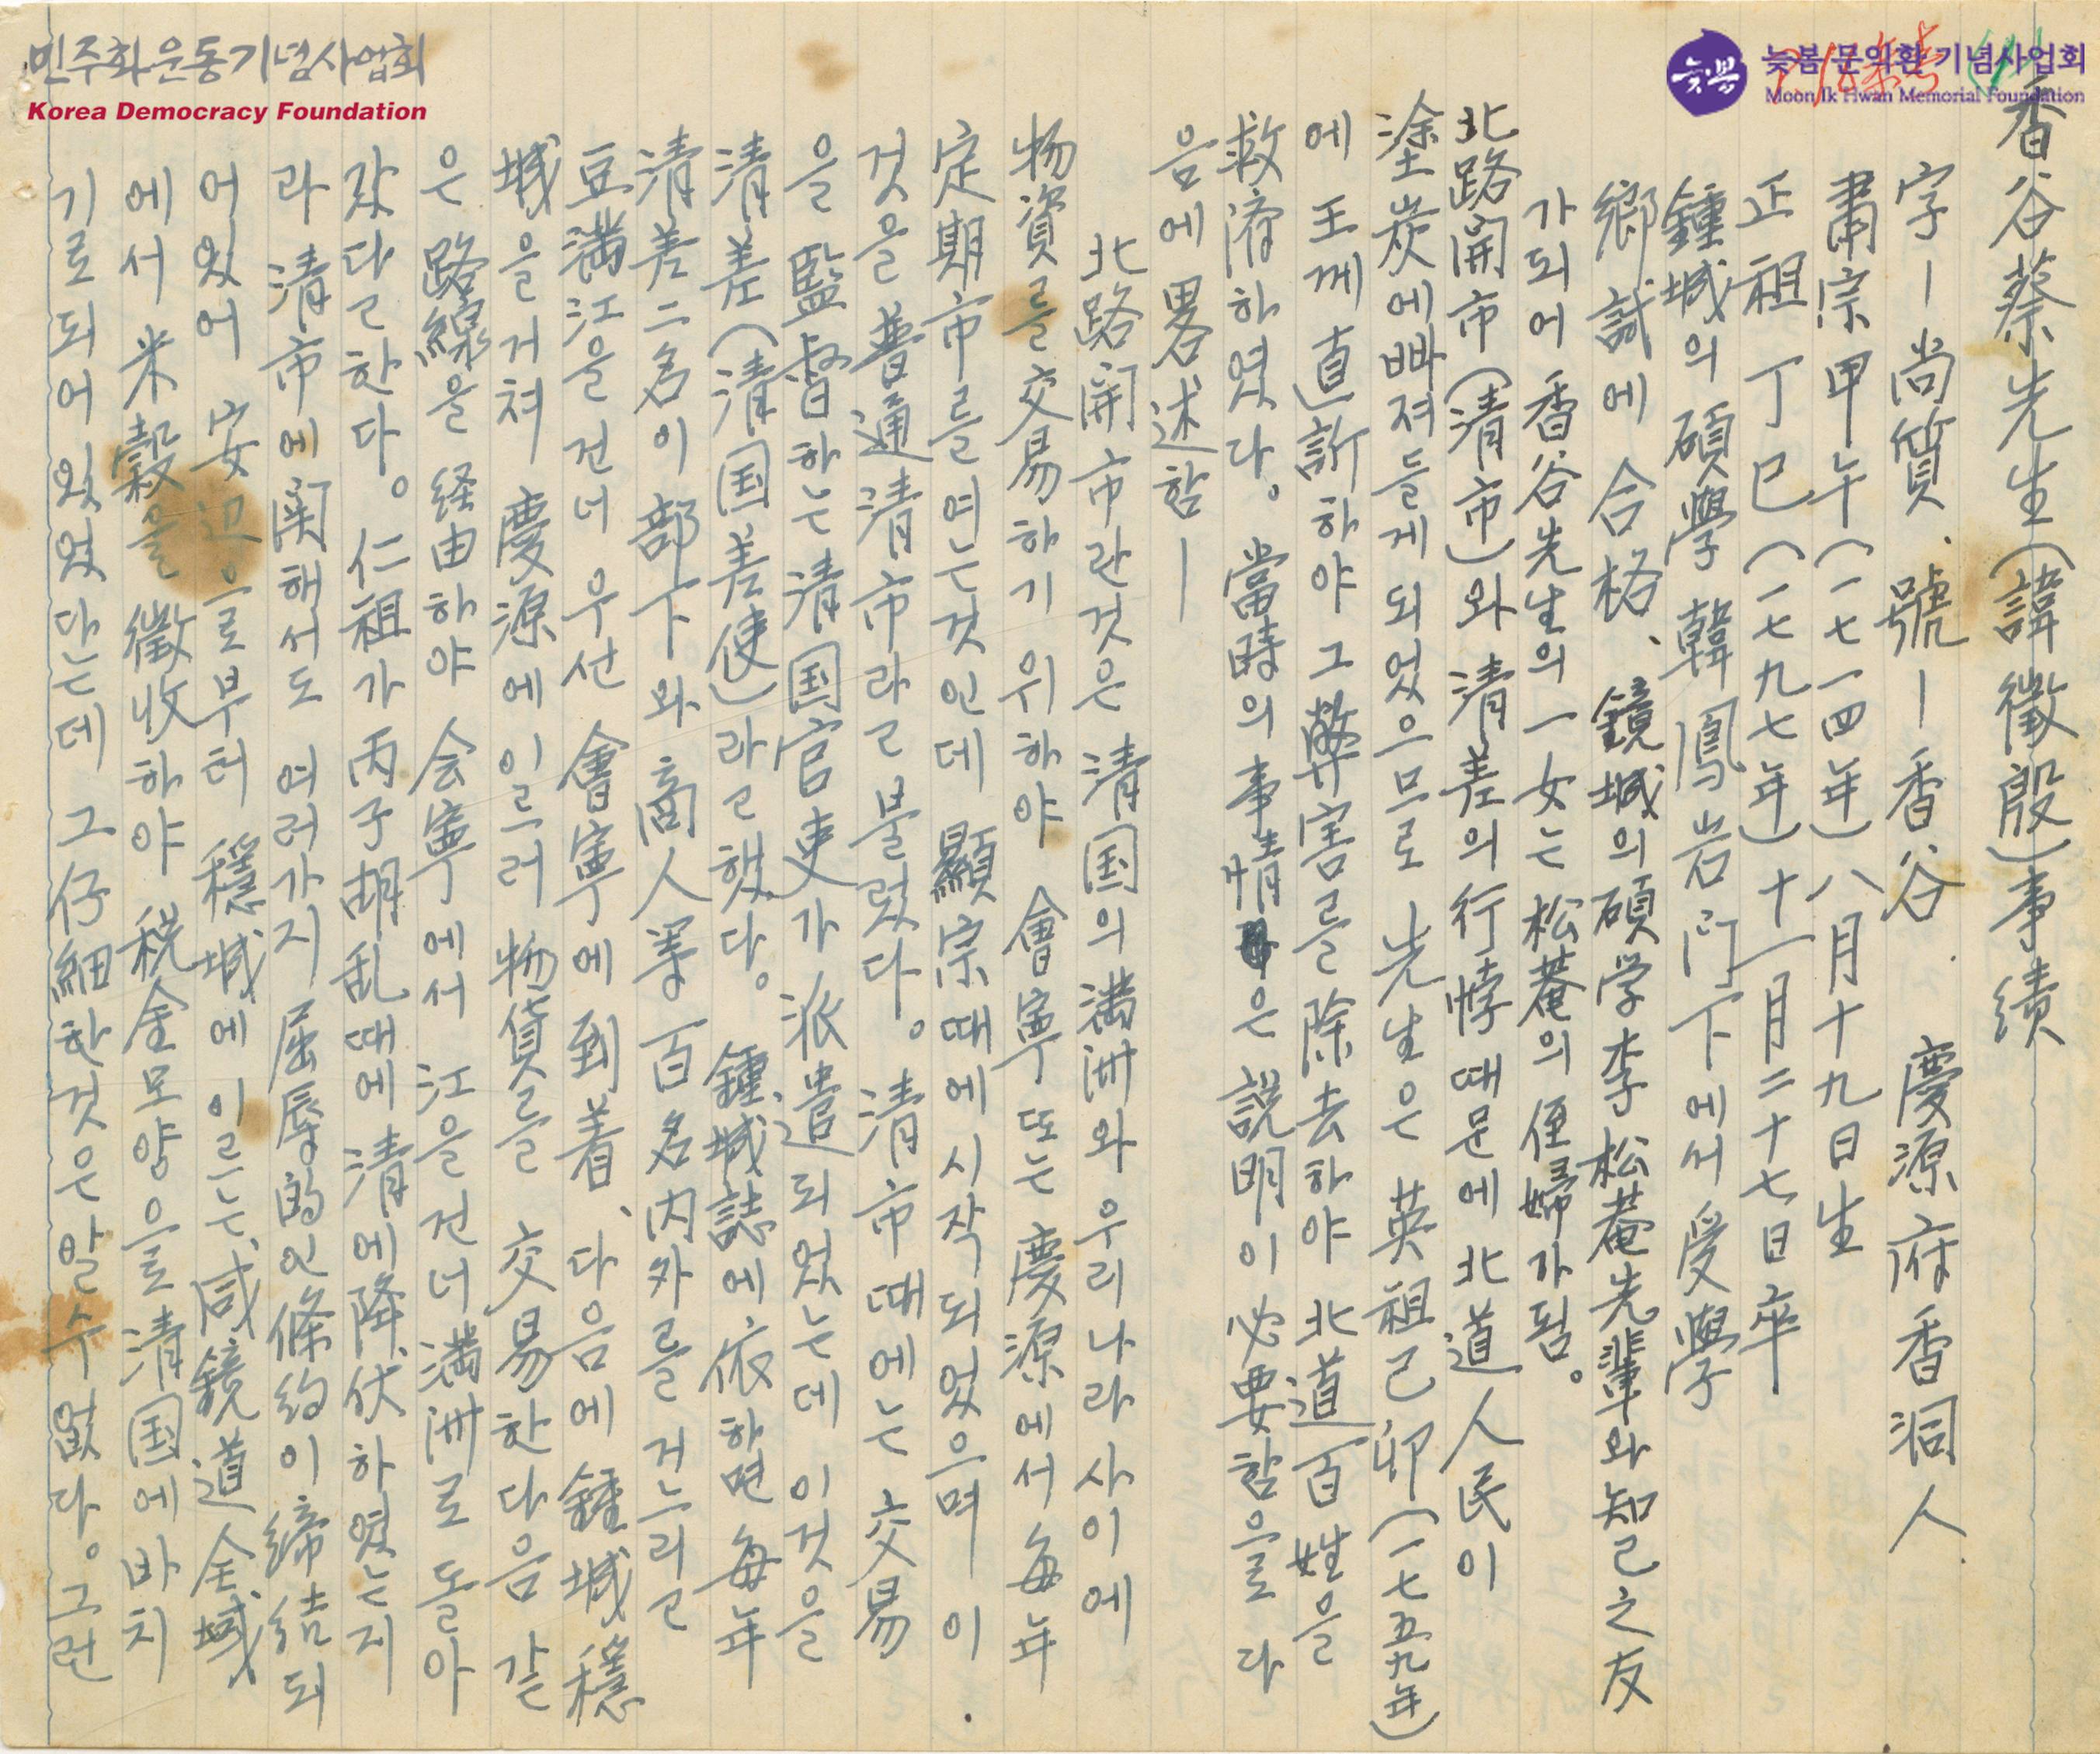 민주화운동기념사업회
Korea Democracy Foundation
늦봄 문익환 기념사업회
Moon Ik Hwan Memorial Foundation
늦봄
香谷蔡先生(諱徵殷)事績
字ー尚質. 號ー香谷. 慶源府香洞人.
肅宗甲午(一七一四年)八月十九日生
正祖丁巳(一七九七年)十一月二十七日卒
鍾城의 碩學 韓鳳岩門下에서 受學
鄕試에 合格、鏡城의 碩学李松菴先輩와 知己之友
가되어 香谷先生의 一女는 松菴의 侄婦가됨。
北路開市(清市)와 清差의 行悖때문에 北道人民이
塗炭에빠져들게 되었으므로 先生은 英祖己卯(一七五九年)
에 王께 直訴하야 그 弊害를 除去하야 北道百姓을
救濟하였다。當時의 事情은 説明이 必要함으로 다
음에 畧述함ー
北路開市란것은 清国의 満洲와 우리나라사이에
物資를 交易하기 위하야 會寧 또는 慶源에서 每年
定期市를 여는것인데 顯宗때에 시작되었으며 이
것을 普通清市라고 불렀다。清市때에는 交易
을 監督하는 清国官吏가 派遣되었는데 이것을
清差(清国差使)라고했다。鍾城誌에 依하면 每年
清差二名이 部下와 商人等 百名内外를 거느리고
豆満江을 건너 우선 會寧에 到着、다음에 鍾城 穩
城을 거쳐 慶源에 이르러 物貨를 交易한 다음 같
은 路線을 経由하야 会寧에서 江을 건너 満洲로 돌아
갔다고한다。仁祖가 丙子胡乱때에 清에 降伏하였는지
라 清市에 関해서도 여러가지 屈辱的인 條約이 締結되
어있어 安边으로부터 穩城에 이르는 咸鏡道全域
에서 米穀을 徵收하야 税金모양으로 清国에 바치
기로되어 있었다는데 그 仔細한것은 알수 없다。그런